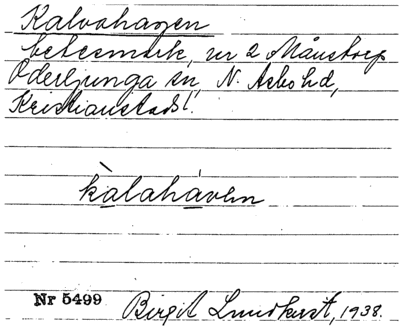 Kalvahagen
betesmark, nr 2 Månstorp
Oderljunga sn, N. Åsbo hd,
Kristianstads l.
kalahávεn
Nr 5499 Birgit Lundkvist, 1938.